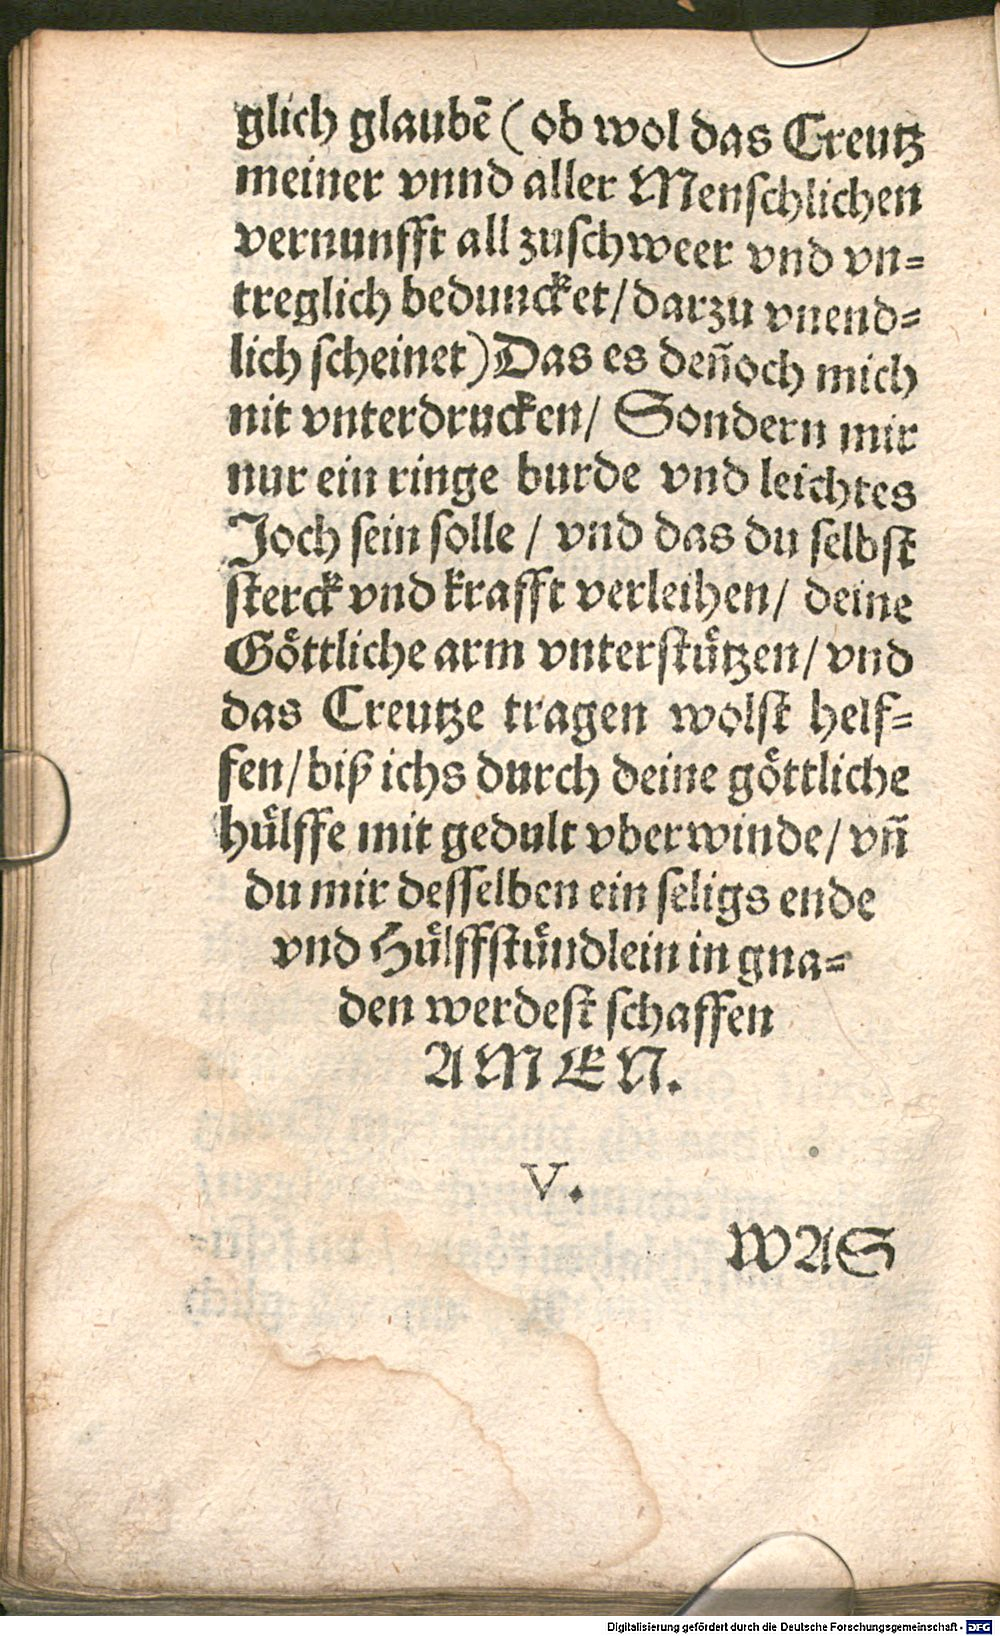 glich glaubē (ob wol das Creutz
meiner vnnd aller Menschlichen
vernunfft all zuschweer vnd vn-
treglich beduncket/ darzu vnend-
lich scheinet) Das es deñoch mich
nit vnterdrucken/ Sondern mir
nur ein ringe burde vnd leichtes
Joch sein solle / vnd das du selbst
sterck vnd krafft verleihen/ deine
Goͤttliche arm vnterstuͤtzen/ vnd
das Creutze tragen wolst helf-
fen/ biß ichs durch deine goͤttliche
huͤlffe mit gedult vberwinde/ vñ
du mir desselben ein seligs ende
vnd Huͤlffstuͤndlein in gna-
den werdest schaffen
AMEN.
V.
WAS
Digitalisierung gefördert durch die Deutsche Forschungsgemeinschaft - DFG